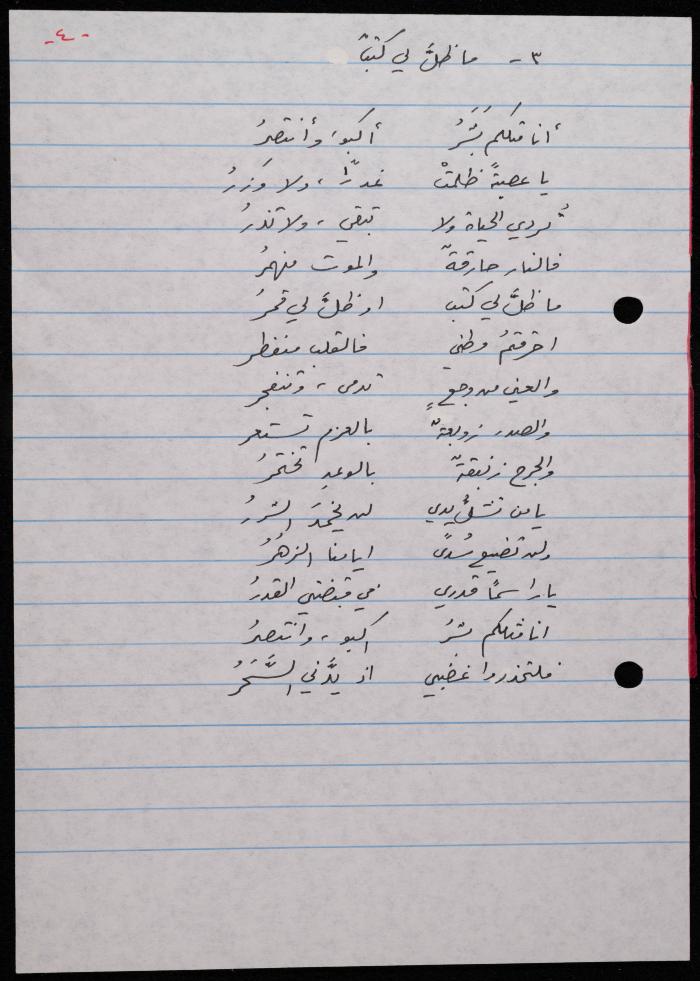 -٤-
٣- ما ظلَّ لي كتبٌ
أنا مثلكم بَشَرُ أكبو، وأنتصرُ
يا عصبةً ظلمتْ غدرًا، ولا وَزَرُ
تُردي الحياة ولا تبقي، ولا تذرُ
فالنار حارقةٌ والموت منهمرُ
ما ظلَّ لي كتب او ظلَّ لي قمرُ
احرقتمُ وطني فالقلب منفطر
والعين من وجعٍ تدمى، وتنفجر
والصدر زوبعةٌ بالعزم تستعر
والجرح زنبقةٌ بالوعدِ تختمرُ
يا من تشلُّ يدي لن يخمدَ الشررُ
ولن تضيع سُدًى ايامنا الزهُرُ
يا راسمًا قدري في قبضتي القدرُ
انا مثلكم بشرُ اكبو، وانتصرُ
فلتحذروا غضبي السَّحَرُ